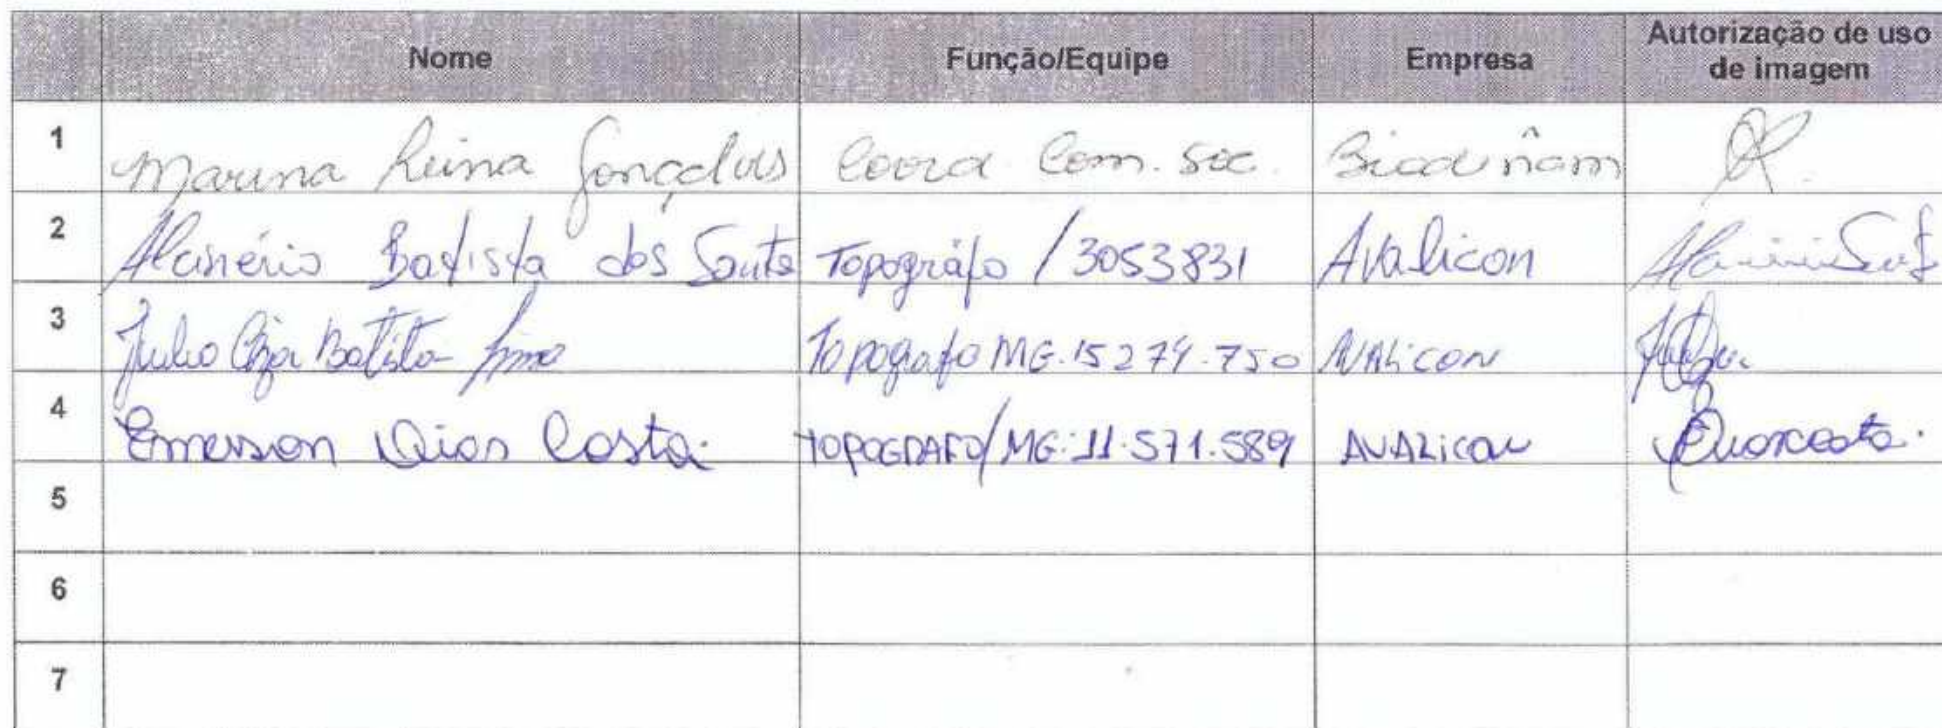 Nome Função/Equipe Empresa Autorização de uso
de imagem
1 Marina Reina Gonçalves Coord. Com. Soc.
2 Alcinério Batista dos Santos Topográfo / 3053831 Avalicon
3 Julio Cézar Batista Topografo MG. 15 274.750 AVALiCON
4 Emerson Dias Costa. TOPOGRAFO/MG: 11.571.589 AVALiCON
5
6
7